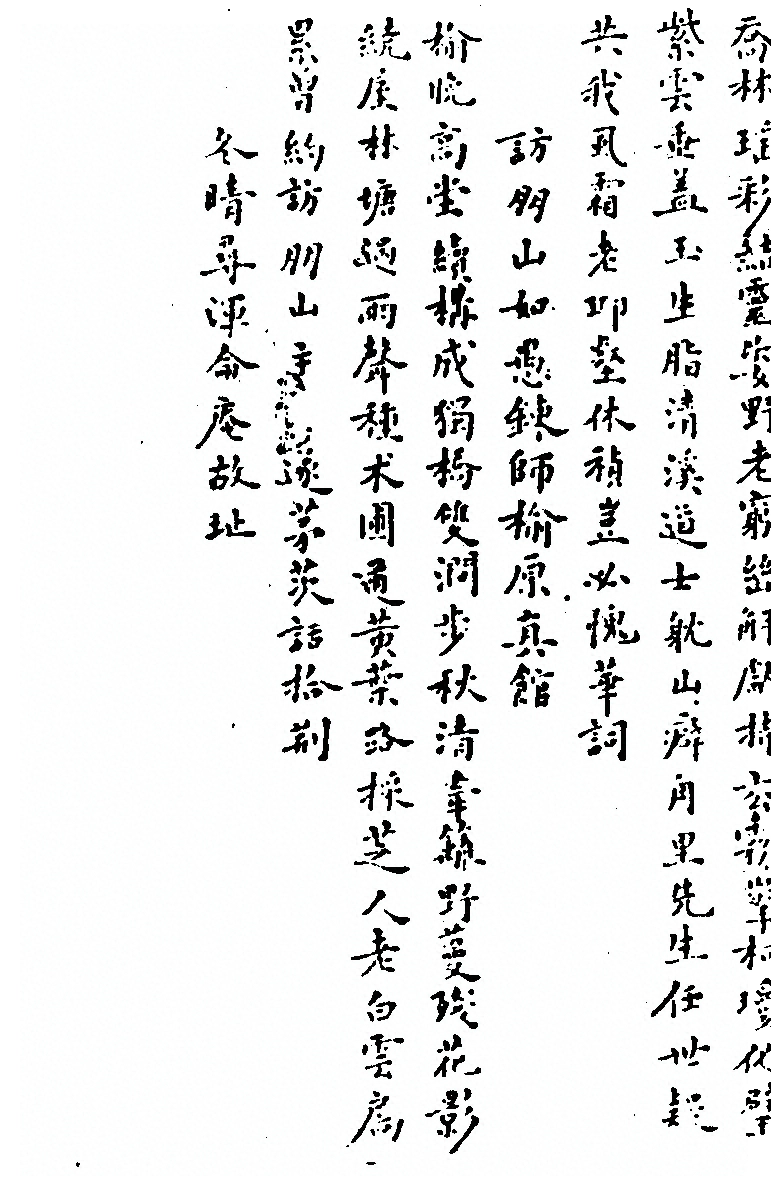 喬林瑶彩結靈姿野老窮幽解獻持玄霧擎柯瓊作壁
紫雲垂蓋玉生脂清溪道士躭山癖甪里先生任世疑
共我風霜老邱壑休禎豈必愧華詞
訪朋山如愚鍊師榆原真館
榆晚高堂續構成獨橋雙澗步秋清牽籬野蔓殘花影
繞屋林塘過雨聲種术圃通黃葉路採芝人老白雲扃
累曾約訪朋山 遂茅茨話拾荆
冬晴尋渾侖庵故址